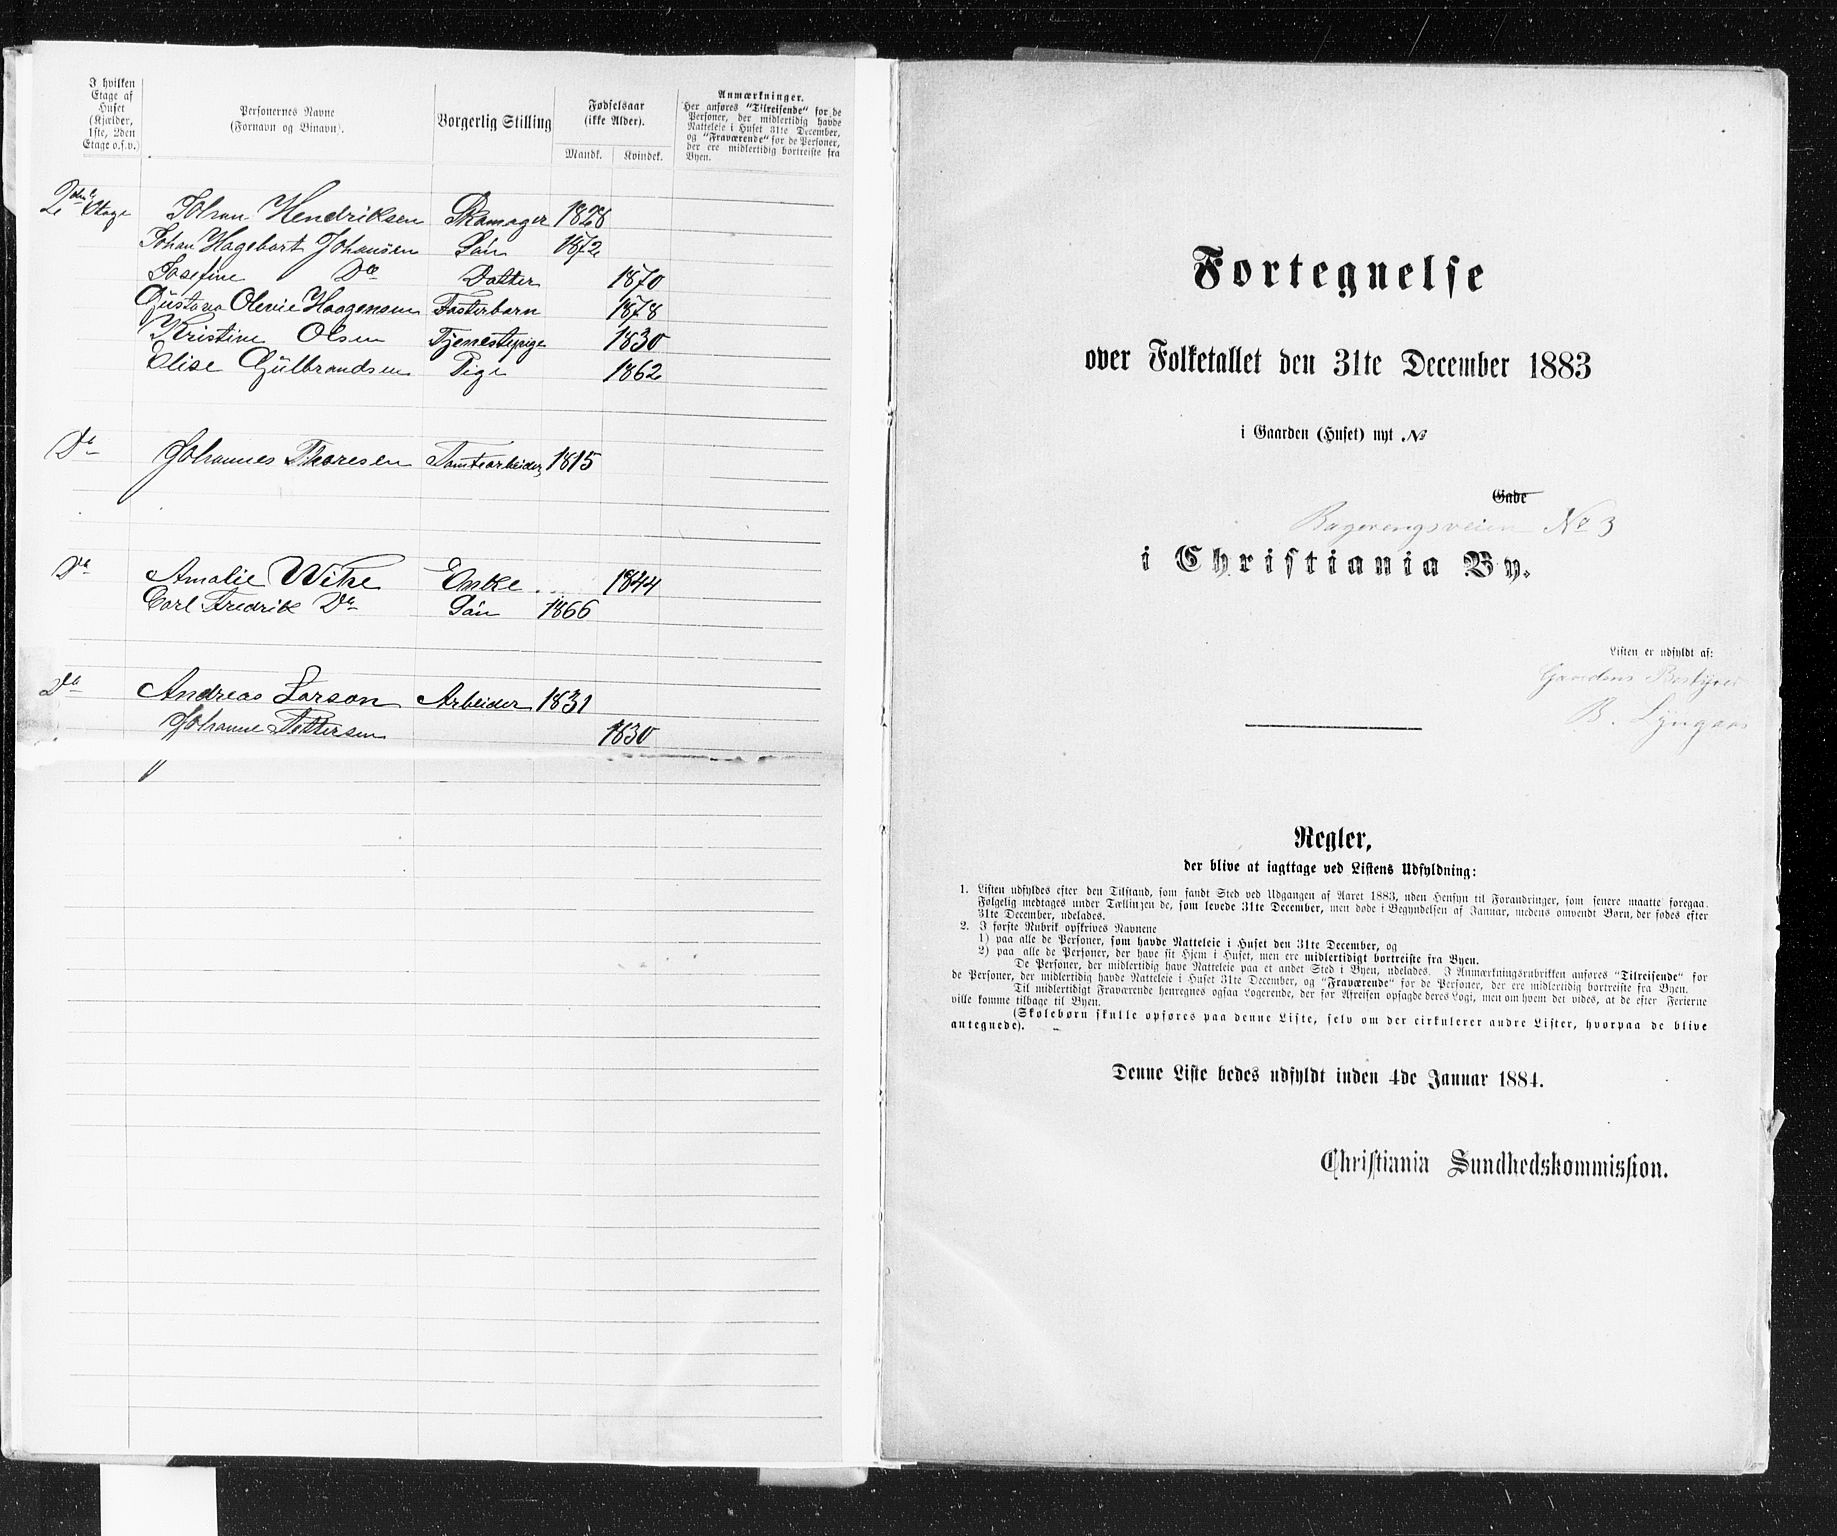 I hvilken
Etage af
Huset
(Kjælder,
1ste, 2den
Etage o.s.v.)
Personernes Navne
(Fornavn og Binavn).
Borgerlig Stilling
Fødselsaar
(ikke Alder).
Mandk. Kvindek.
Anmærkninger.
Her anføres "Tilreisende" for de
Personer, der midlertidig havde
Natteleie i Huset 31te December,
og "Fraværende" for de Personer,
der ere midlertidig bortreiste fra
Byen.
2den Etage Johan Hendriksen Skomager 1828
Johan Hagebart Johansen Søn 1872
Josefine Do Datter 1870
Gustava Olevie Haagensen Fosterbarn 1878
Kristine Olsen Tjenestepige 1830
Elise Gülbrandsen Pige 1862
Do Johannes Thoresen Tomtearbeider 1815
Do Amalie Wike Enke 1844
Carl Fredrik Do Søn 1866
Do Andreas Larson Arbeider 1831
Johanne Pettersen 1830
Fortegnelse
over Folketallet den 31te December 1883
i Gaarden (Huset) nyt №
Gade
No 3
i Christiania By.
Listen er udfyldt af:
Gaardens Bestyrer
B. Lyngaas
Regler,
der blive at iagttage ved Listens Udfyldning:
1. Listen udfyldes efter den Tilstand, som fandt Sted ved Udgangen af Aaret 1883, uden Hensyn til Forandringer, som senere maatte foregaa.
Følgelig medtages under Tællingen de, som levede 31te December, men døde i Begyndelsen af Januar, medens omvendt Børn, der fødes efter
31te December, udelades.
2. I første Rubrik opskrives Navnene
1) paa alle de Personer, som havde Natteleie i Huset den 31te December, og
2) paa alle de Personer, der have sit Hjem i Huset, men ere midlertidigt bortreiste fra Byen.
De Personer, der midlertidig have Natteleie paa et andet Sted i Byen, udelades. I Anmærkningsrubrikken anføres "Tilreisende" for
de Personer, der midlertidig havde Natteleie i Huset 31te December, og "Fraværende" for de Personer, der ere midlertidig bortreiste fra Byen.
Til midlertidigt Fraværende henregnes ogsaa Logerende, der før Afreisen opsagde deres Logi, men om hvem det vides, at de efter Ferierne
ville komme tilbage til Byen.
(Skolebørn skulle opføres paa denne Liste, selv om der cirkulerer andre Lister, hvorpaa de blive
antegnede).
Denne Liste bedes udfyldt inden 4de Januar 1884.
Christiania Sundhedskommission.